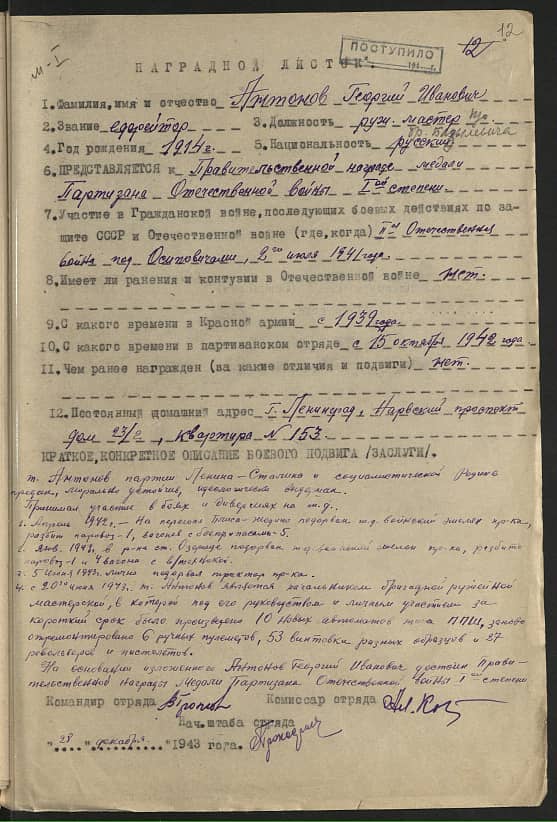 12
12
м-I
ПОСТУПИЛО
НАГРАДНОЙ ЛИСТОК.
1. Фамилия, имя и отчество Антонов Георгий Иванович
2. Звание ефрейтор 3. Должность руж. мастер
4. Год рождения 1914 г. 5. Национальность русский
6. ПРЕДСТАВЛЯЕТСЯ к Правительственной награде медали
Партизана Отечественной войны I ой степени.
7. Участие в Гражданской войне, последующих боевых действиях по за-
щите СССР и Отечественной войне (где, когда) II ая Отечественная
война под Осиповичами, 2 го июля 1941 года.
8. Имеет ли ранения и контузии в Отечественной войне нет.
9. С какого времени в Красной армии с 1939 года.
10. С какого времени в партизанском отряде с 15 октября 1942 года
11. Чем ранее награжден (за какие отличия и подвиги) нет.
12. Постоянный домашний адрес г. Ленинград, Нарвский проспект
дом 27/2, квартира N 153.
КРАТКОЕ, КОНКРЕТНОЕ ОПИСАНИЕ БОЕВОГО ПОДВИГА /ЗАСЛУГИ/.
т. Антонов партии Ленина-Сталина и социалистической Родине
предан, морально устойчив, идеологически выдержан.
Принимал участие в боях и диверсиях на ж.д.
1. Апреле 1942 г. – На перегоне подорван ж.д. воинский эшелон пр-ка,
разбит паровоз-1, вагонов с боеприпасами-5.
Янв. 1943 г. в р-на ст. подорван эшелон пр-ка, разбито
паровоз-1 и 4 вагона с
3. 5 июня 1943 г. лично подорвал трактор пр-ка.
4. с 20 го июня 1943 г. т. Антонов является начальником бригадной ружейной
мастерской, в которой под его руководством и личным участием за
короткий срок было произведено 10 новых автоматов типа ППШ, заново
отремонтировано 6 ручных пулеметов, 53 винтовки разных образцов и 27
револьверов и пистолетов.
На основании изложенного Антонов Георгий Иванович достоин Прави-
тельственной награды Медали Партизана Отечественной войны I ой степени
Командир отряда Комиссар отряда
Нач. штаба отряда
"28" декабря 1943 года.